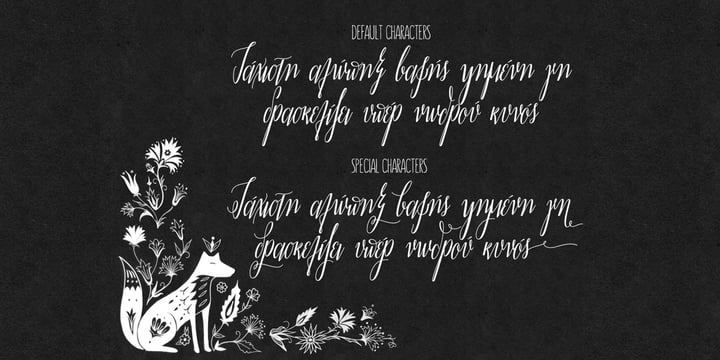 DEFAULT CHARACTERS
Τάχιστη αλώπηξ βαφής ψημένη γη
δρασκελίζει υπέρ νωθρού κυνός
SPECIAL CHARACTERS
Τάχιστη αλώπηξ βαφής ψημένη γη
δρασκελίζει υπέρ νωθρού κυνός